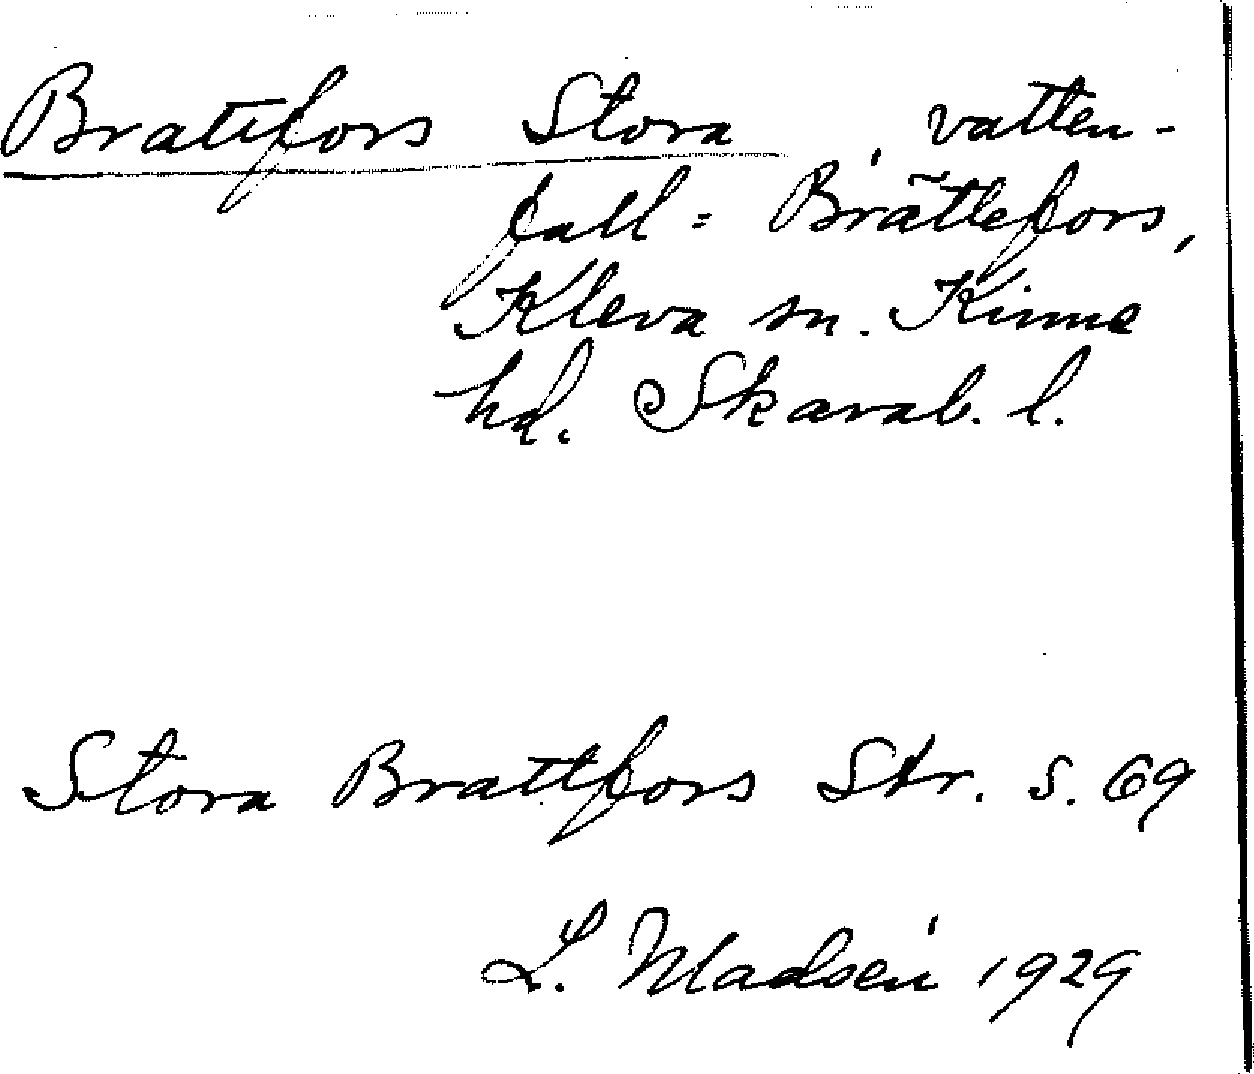 Brattfors Stora, vatten-
fall = Brättefors,
Kleva sn. Kinne
hd. Skarab. l.
Stora Brattfors Str. S. 69
L. Madsén 1929